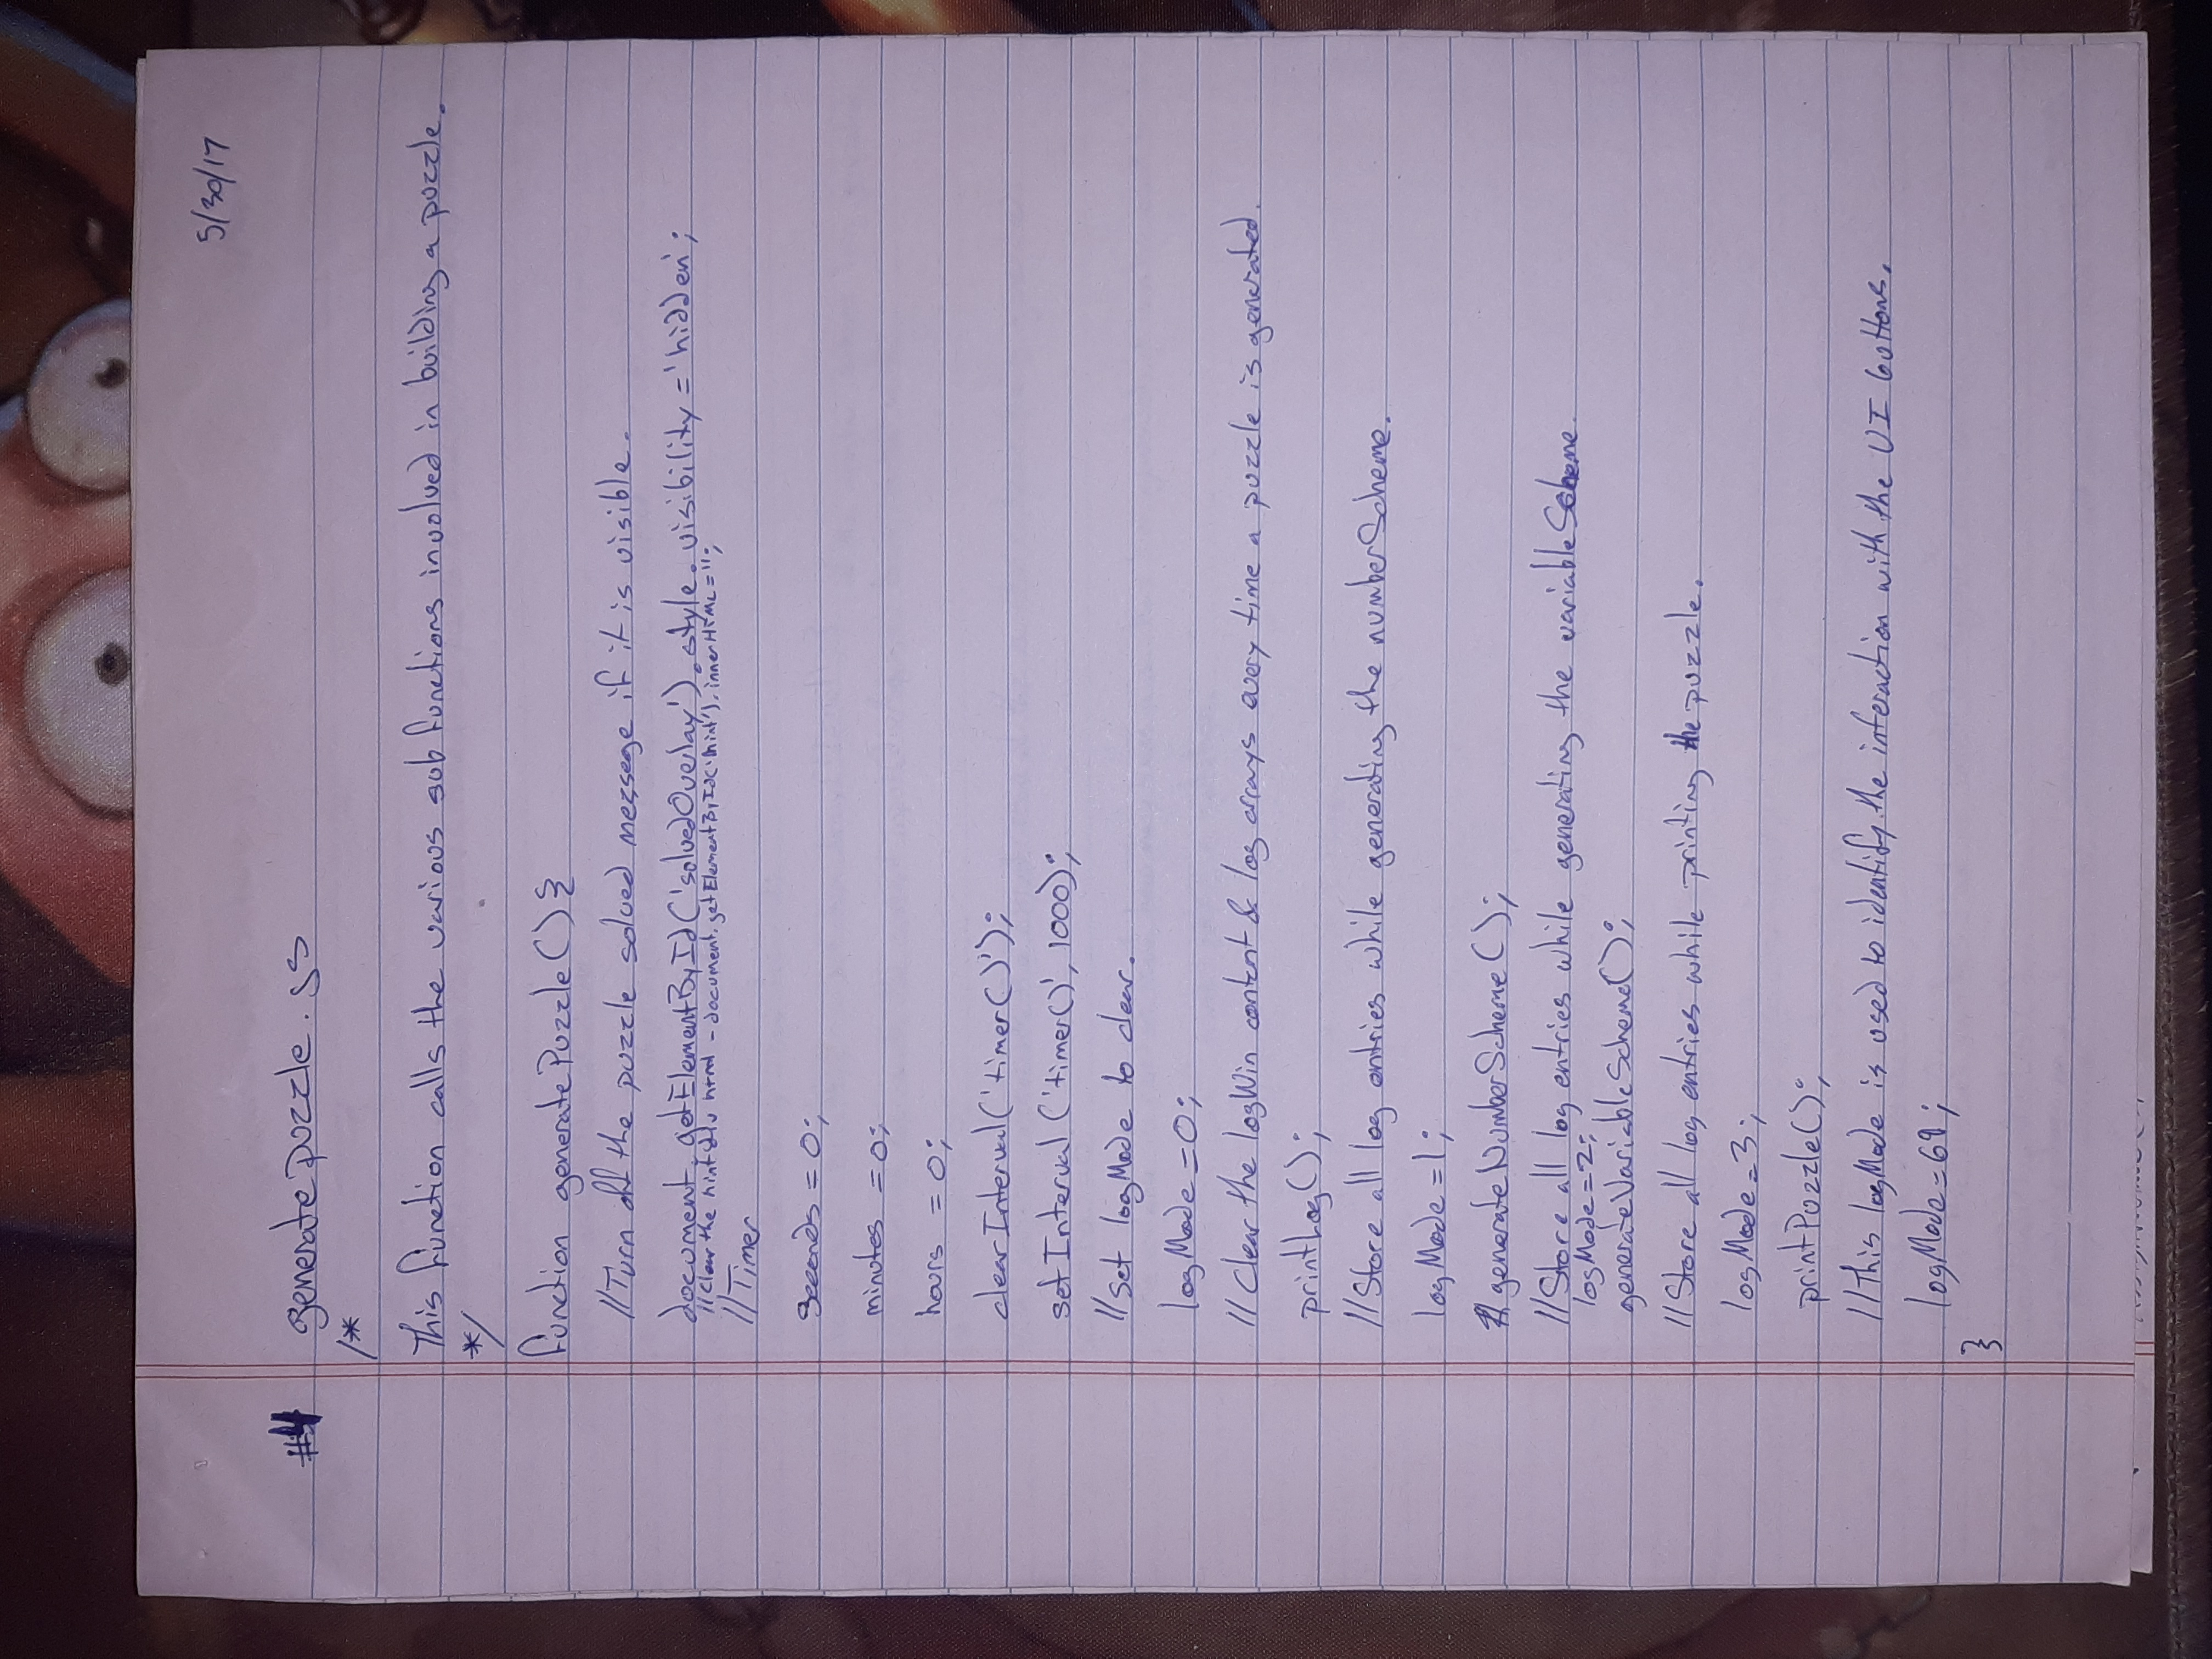 5/30/17
#4 generatepuzzle.js
/*
This function calls the various sub functions involved in building a puzzle.
*/
function generatePuzzle(){
//Turn off the puzzle solved messege if it is visible.
document.getElementById('solvedOverlay').style.visibility='hidden';
//Clear the hint div html - document.getElementById('hint').innerHTML='';
//Timer
seconds = 0;
minutes = 0;
hours = 0;
clearInterval('timer()');
setInterval('timer()', 1000);
//Set logMode to clear.
logMode=0;
//Clear the logWin content & log arrays every time a puzzle is generated.
printLog();
//Store all log entries while generating the numberScheme.
logMode=1;
generateNumberScheme();
//Store all log entries while generating the variableScheme.
logMode=2;
generateVariableScheme();
//Store all log entries while printing the puzzle.
logMode=3;
printPuzzle();
//This logMode is used to identify the interaction with the UI buttons.
logMode=69;
}